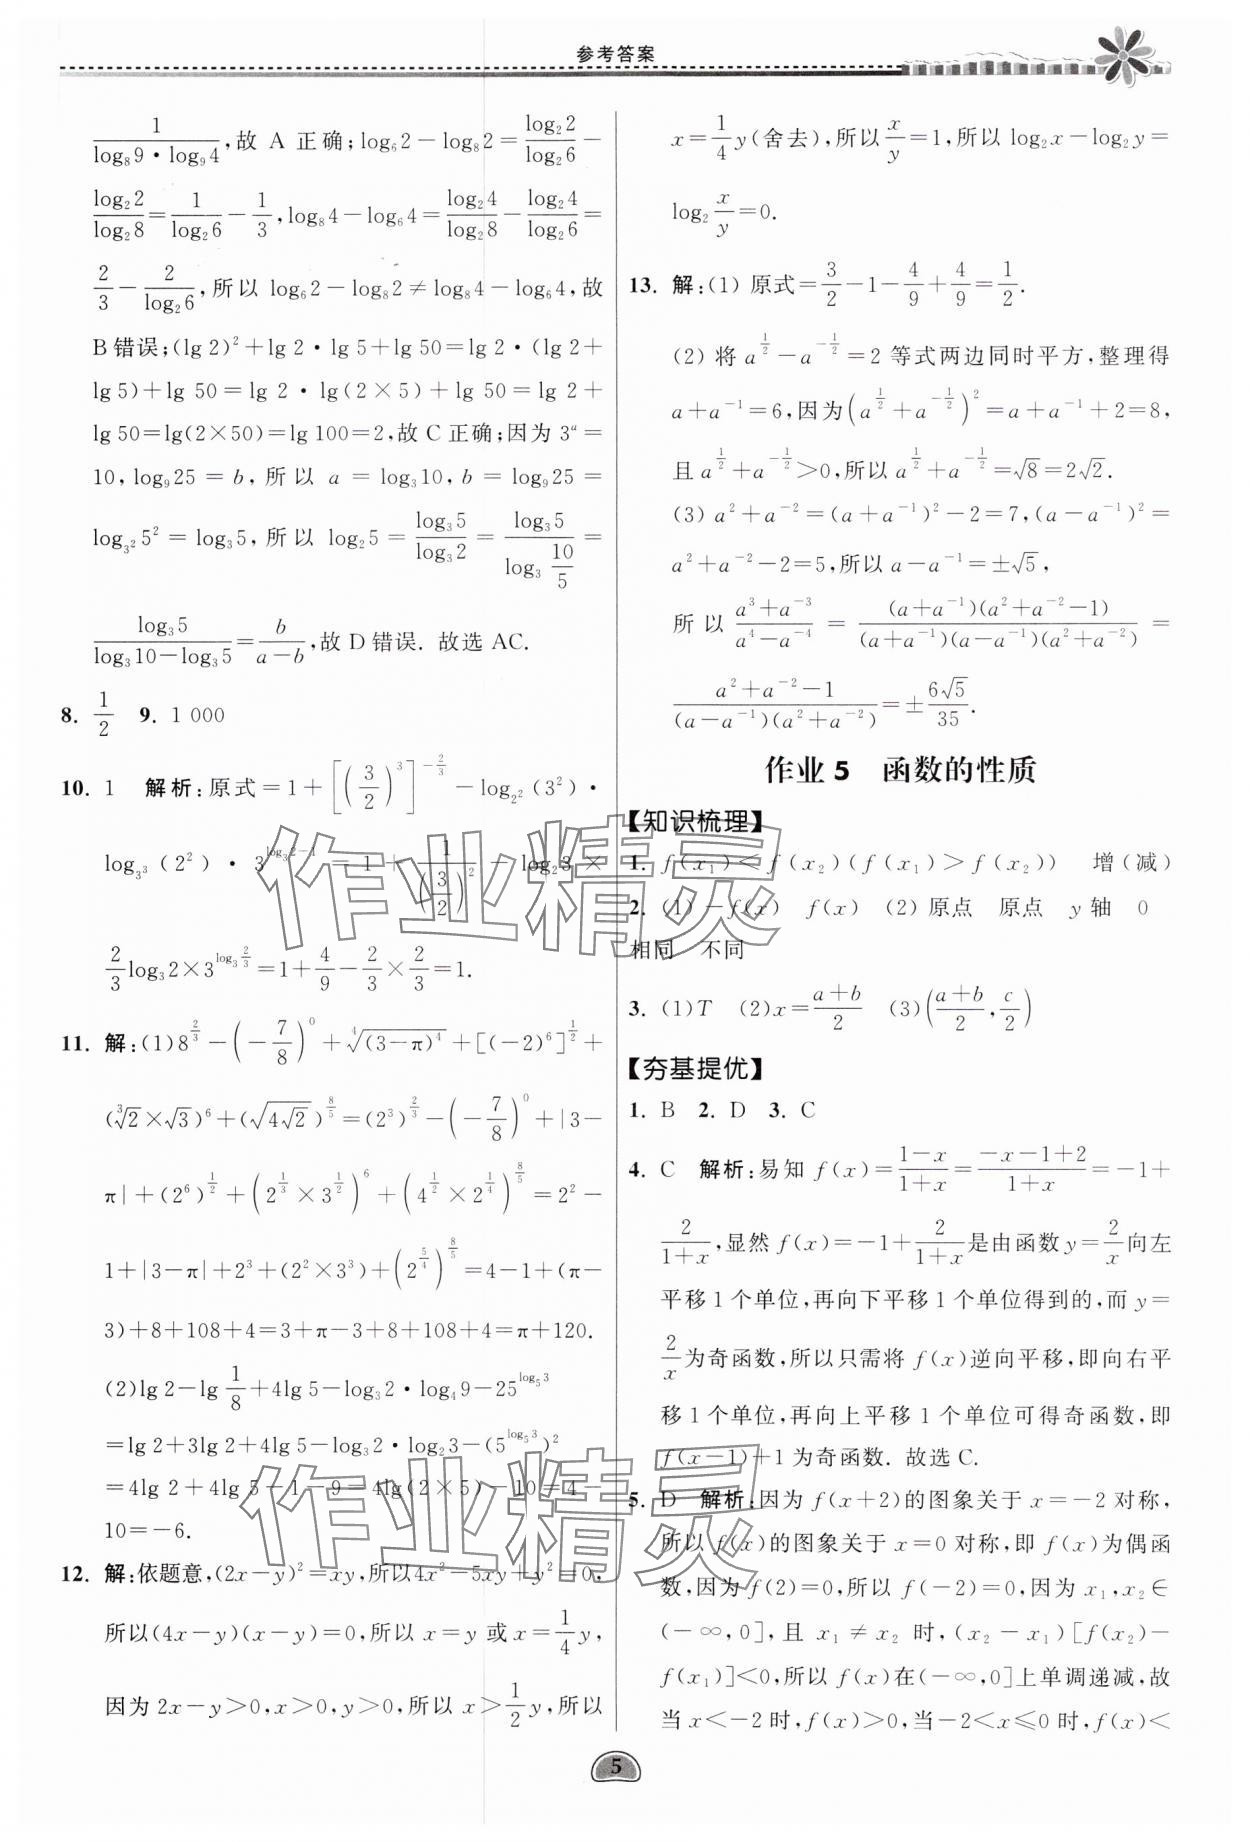 参考答案
$\frac{1}{\log_8 9 \cdot \log_9 4}$,故 A 正确;$\log_6 2-\log_8 2=\frac{\log_2 2}{\log_2 6}-$
$\frac{\log_2 2}{\log_2 8}=\frac{1}{\log_2 6}-\frac{1}{3}$,$\log_8 4-\log_6 4=\frac{\log_2 4}{\log_2 8}-\frac{\log_2 4}{\log_2 6}=$
$\frac{2}{3}-\frac{2}{\log_2 6}$,所以 $\log_6 2-\log_8 2\neq\log_8 4-\log_6 4$,故
B 错误;$(\lg 2)^2+\lg 2\cdot\lg 5+\lg 50=\lg 2\cdot(\lg 2+$
$\lg 5)+\lg 50=\lg 2\cdot\lg(2\times5)+\lg 50=\lg 2+$
$\lg 50=\lg(2\times50)=\lg 100=2$,故 C 正确;因为 $3^a=$
$10,\log_9 25=b$,所以 $a=\log_3 10,b=\log_9 25=$
$\log_{3^2}5^2=\log_3 5$,所以 $\log_2 5=\frac{\log_3 5}{\log_3 2}=\frac{\log_3 5}{\log_3\frac{10}{5}}=$
$\frac{\log_3 5}{\log_3 10-\log_3 5}=\frac{b}{a-b}$,故 D 错误. 故选 AC.
8. $\frac{1}{2}$ 9. 1 000
10. 1 解析:原式$=1+\left[\left(\frac{3}{2}\right)^3\right]^{-\frac{2}{3}}-\log_{2^2}(3^2)\cdot$
$\log_{3^3}(2^2)\cdot3^{\log_3 2-1}=1+\frac{1}{\left(\frac{3}{2}\right)^2}-\log_2 3\times$
$\frac{2}{3}\log_3 2\times3^{\log_3\frac{2}{3}}=1+\frac{4}{9}-\frac{2}{3}\times\frac{2}{3}=1.$
11. 解:(1)$8^{\frac{2}{3}}-\left(-\frac{7}{8}\right)^0+\sqrt[4]{(3-π)^4}+[(-2)^6]^{\frac{1}{2}}+$
$(\sqrt[3]{2}\times\sqrt{3})^6+(\sqrt{4\sqrt{2}})^{\frac{8}{5}}=(2^3)^{\frac{2}{3}}-\left(-\frac{7}{8}\right)^0+|3-$
$π|+(2^6)^{\frac{1}{2}}+\left(2^{\frac{1}{3}}\times3^{\frac{1}{2}}\right)^6+\left(4^{\frac{1}{2}}\times2^{\frac{1}{4}}\right)^{\frac{8}{5}}=2^2-$
$1+|3-π|+2^3+(2^2\times3^3)+\left(2^{\frac{5}{4}}\right)^{\frac{8}{5}}=4-1+(π-$
$3)+8+108+4=3+π-3+8+108+4=π+120.$
(2)$\lg 2-\lg\frac{1}{8}+4\lg 5-\log_3 2\cdot\log_4 9-25^{\log_5 3}$
$=\lg 2+3\lg 2+4\lg 5-\log_3 2\cdot\log_2 3-(5^{\log_5 3})^2$
$=4\lg 2+4\lg 5-1-9=4\lg(2\times5)-10=4-$
$10=-6.$
12. 解:依题意,$(2x-y)^2=xy$,所以$4x^2-5xy+y^2=0$.
所以$(4x-y)(x-y)=0$,所以 $x=y$ 或 $x=\frac{1}{4}y$,
因为 $2x-y>0,x>0,y>0$,所以 $x>\frac{1}{2}y$,所以
$x=\frac{1}{4}y$(舍去),所以$\frac{x}{y}=1$,所以 $\log_2 x-\log_2 y=$
$\log_2\frac{x}{y}=0.$
13. 解:(1) 原式$=\frac{3}{2}-1-\frac{4}{9}+\frac{4}{9}=\frac{1}{2}.$
(2) 将 $a^{\frac{1}{2}}-a^{-\frac{1}{2}}=2$ 等式两边同时平方,整理得
$a+a^{-1}=6$,因为$\left(a^{\frac{1}{2}}+a^{-\frac{1}{2}}\right)^2=a+a^{-1}+2=8$,
且 $a^{\frac{1}{2}}+a^{-\frac{1}{2}}>0$,所以 $a^{\frac{1}{2}}+a^{-\frac{1}{2}}=\sqrt{8}=2\sqrt{2}.$
(3) $a^2+a^{-2}=(a+a^{-1})^2-2=7,(a-a^{-1})^2=$
$a^2+a^{-2}-2=5$,所以 $a-a^{-1}=\pm\sqrt{5}$,
所以 $\frac{a^3+a^{-3}}{a^4-a^{-4}}=\frac{(a+a^{-1})(a^2+a^{-2}-1)}{(a+a^{-1})(a-a^{-1})(a^2+a^{-2})}=$
$\frac{a^2+a^{-2}-1}{(a-a^{-1})(a^2+a^{-2})}=\pm\frac{6\sqrt{5}}{35}.$
作业 5 函数的性质
【知识梳理】
1. $f(x_1)<f(x_2)(f(x_1)>f(x_2))$ 增(减)
2. (1)$-f(x)$ $f(x)$ (2) 原点 原点 y 轴 0
相同 不同
3. (1)T (2)$x=\frac{a+b}{2}$ (3)$\left(\frac{a+b}{2},\frac{c}{2}\right)$
【夯基提优】
1. B 2. D 3. C
4. C 解析:易知 $f(x)=\frac{1-x}{1+x}=\frac{-x-1+2}{1+x}=-1+$
$\frac{2}{1+x}$,显然 $f(x)=-1+\frac{2}{1+x}$是由函数 $y=\frac{2}{x}$向左
平移 1 个单位,再向下平移 1 个单位得到的,而 $y=$
$\frac{2}{x}$为奇函数,所以只需将 $f(x)$逆向平移,即向右平
移 1 个单位,再向上平移 1 个单位可得奇函数,即
$f(x-1)+1$ 为奇函数. 故选 C.
5. D 解析:因为 $f(x+2)$的图象关于 $x=-2$ 对称,
所以 $f(x)$的图象关于 $x=0$ 对称,即 $f(x)$为偶函
数,因为 $f(2)=0$,所以 $f(-2)=0$,因为 $x_1,x_2\in$
$(-\infty,0]$,且 $x_1\neq x_2$ 时,$(x_2-x_1)[f(x_2)-$
$f(x_1)]<0$,所以 $f(x)$在$(-\infty,0]$上单调递减,故
当 $x<-2$ 时,$f(x)>0$,当$-2<x\leqslant0$ 时,$f(x)<$
5
作业精灵
作业精灵